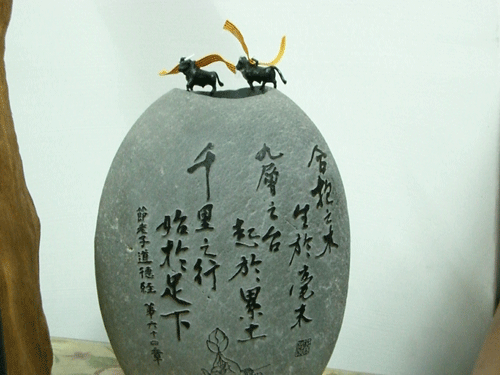 合抱之木
生於毫末
九層之台
起於累土
千里之行
始於足下
節老子道德經 第六十四章